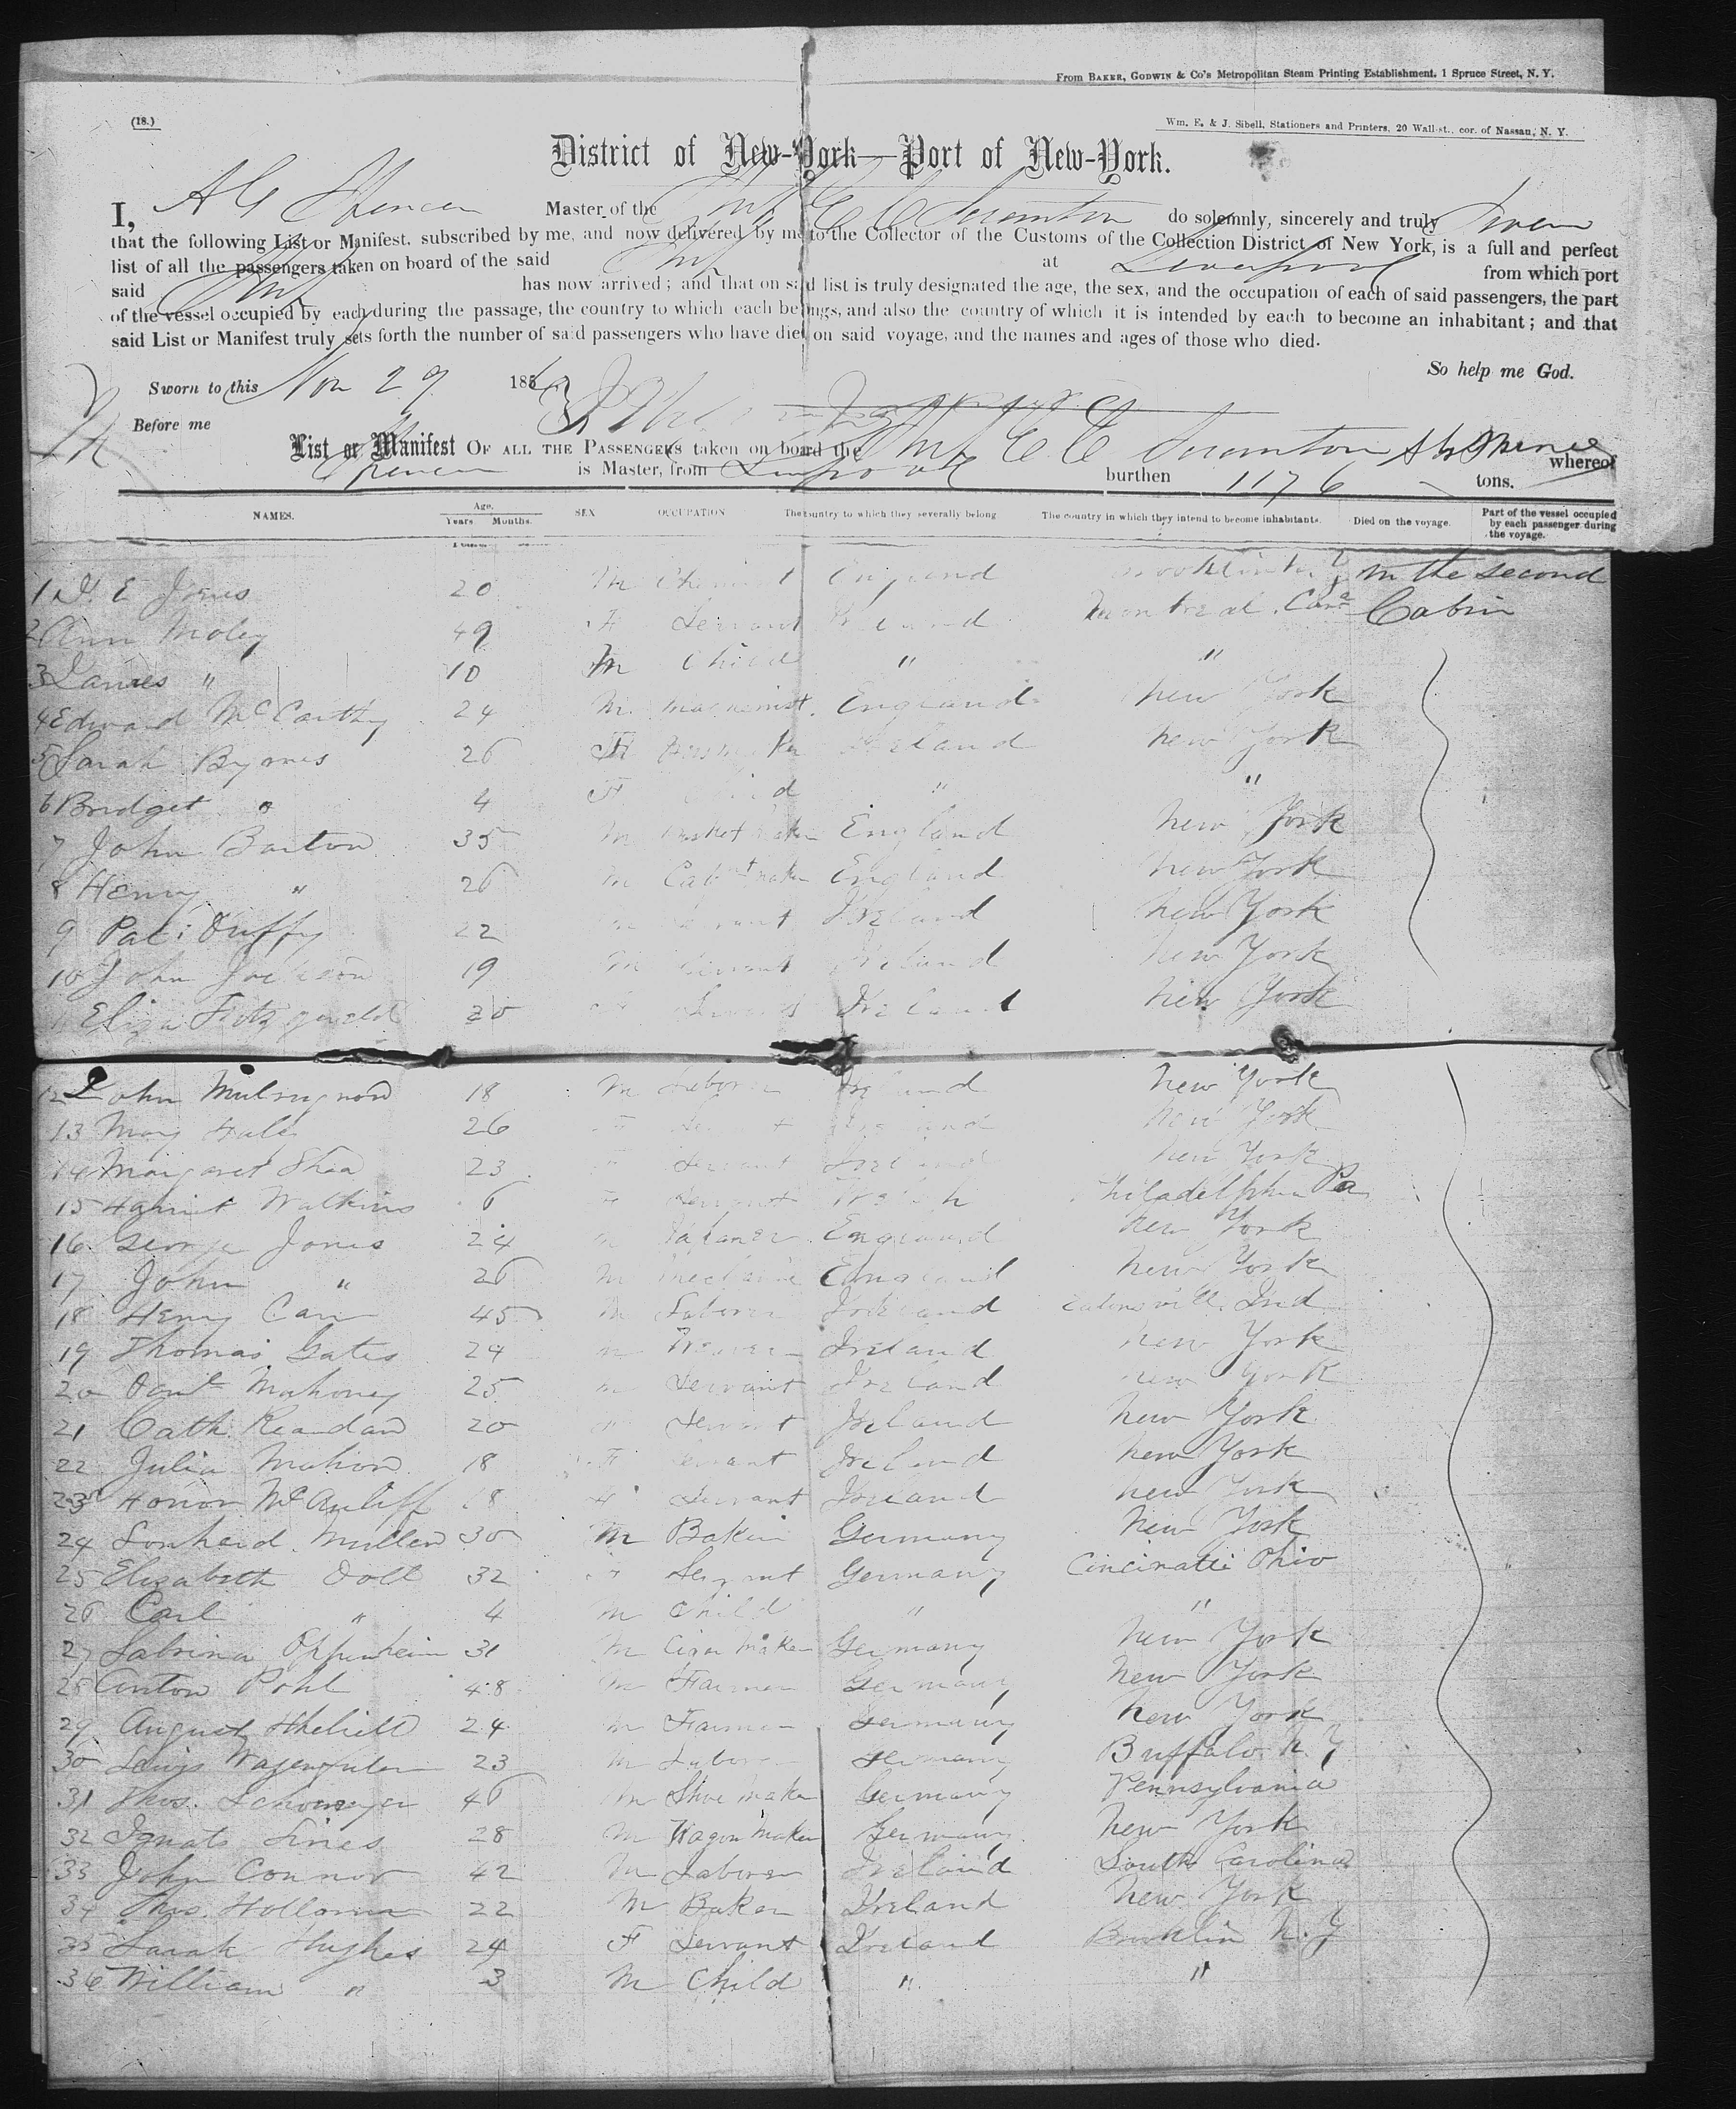 From BAKER, GODWIN & Co's Metropolitan Steam Printing Establishment, 1 Spruce Street, N. Y.
(18.)
Wm. E. & J. Sibell, Stationers and Printers, 20 Wall-st., cor. of Nassau, N. Y.
District of New-York—Port of New-York.
I, A G Spencer Master of the Ship C C Scranton do solemnly, sincerely and truly swear
that the following List or Manifest, subscribed by me, and now delivered by me to the Collector of the Customs of the Collection District of New York, is a full and perfect
list of all the passengers taken on board of the said Ship at Liverpool from which port
said Ship has now arrived; and that on said list is truly designated the age, the sex, and the occupation of each of said passengers, the part
of the vessel occupied by each during the passage, the country to which each belongs, and also the country of which it is intended by each to become an inhabitant; and that
said List or Manifest truly sets forth the number of said passengers who have died on said voyage, and the names and ages of those who died.
So help me God.
Sworn to this Nov 29 186
Before me
List or Manifest OF ALL THE PASSENGERS taken on board the Ship C C Scranton whereof
Spencer is Master, from Liverpool burthen 1176 tons.
NAMES. Age. Years. Months. SEX OCCUPATION The country to which they severally belong The country in which they intend to become inhabitants. Died on the voyage. Part of the vessel occupied by each passenger during the voyage.
1 E Jones 20 M England In the second
2 Ann Moley 49 F Servant Montreal Can Cabin
3 James " 10 M Child " "
4 Edward McCarthy 24 M Machinist England New York
5 Sarah Byrnes 26 F Ireland New York
6 Bridget " 4 F Child " "
7 John Barton 35 M Basket Maker England New York
8 Henry " 26 M Cabt maker England New York
9 Pat: Duffy 22 M Servant Ireland New York
10 John Jackson 19 M Servant Ireland New York
Eliza Fitzgerald 20 Servant Ireland New York
12 John 18 M Laborer Ireland New York
13 Mary 26 F Servant New York
14 Margaret Shea 23 F Servant Ireland New York
15 Harriet Watkins 6 F Servant Philadelphia Pa
16 George Jones 24 M England New York
17 John " 26 M Mechanic England New York
18 Henry Carr 45 M Laborer Ireland Ind
19 Thomas Gates 24 M Weaver Ireland New York
20 Danl Mahoney 25 M Servant Ireland New York
21 Cath Reardan 20 Servant Ireland New York
22 Julia Mahon 18 F Servant Ireland New York
23 Honor McAuliff 18 F Servant Ireland New York
24 Muller 30 M Baker Germany New York
25 Elizabeth Doll 32 F Servant Germany Cincinatti Ohio
26 Carl " 4 M Child " "
27 Sabrina Oppenheim 31 M Cigar Maker Germany New York
28 Anton Pohl 48 M Farmer Germany New York
29 August 24 M Farmer Germany New York
30 23 M Laborer Germany Buffalo N.Y
31 Thos. 46 M Shoe Maker Germany Pennsylvania
32 Ignatz 28 M Wagon Maker Germany New York
33 John Connor 42 M Laborer Ireland South Carolina
34 Thos. 22 M Baker Ireland New York
35 Sarah Hughes 24 F Servant Ireland Brooklin N.Y
36 William " 3 M Child " "